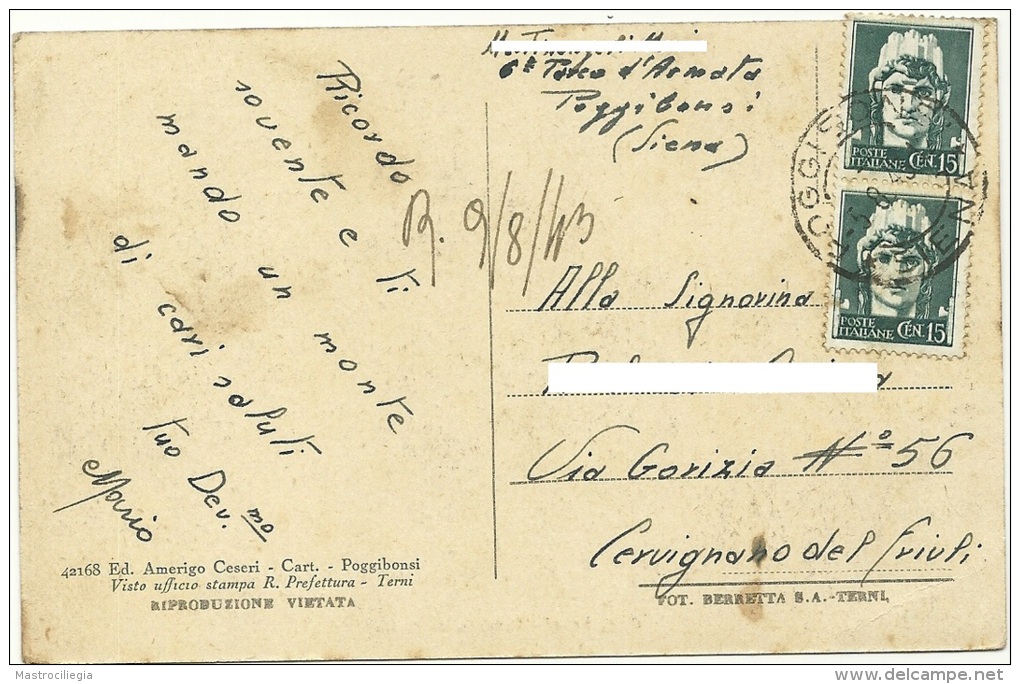 6ª Parco d'Armata
Poggibonsi
(Siena)
Ricordo
sovente e ti
mando un monte
di cari saluti
tuo Dev.mo
Mario
R. 9/8/43
POSTE ITALIANE CEN. 15
POSTE ITALIANE CEN. 15
Alla Signorina
Via Gorizia N° 56
Cervignano del Friuli
42168 Ed. Amerigo Ceseri - Cart. - Poggibonsi
Visto ufficio stampa R. Prefettura - Terni
RIPRODUZIONE VIETATA
FOT. BERRETTA S.A.-TERNI,
Mastrociliegia
www.delcampe.net